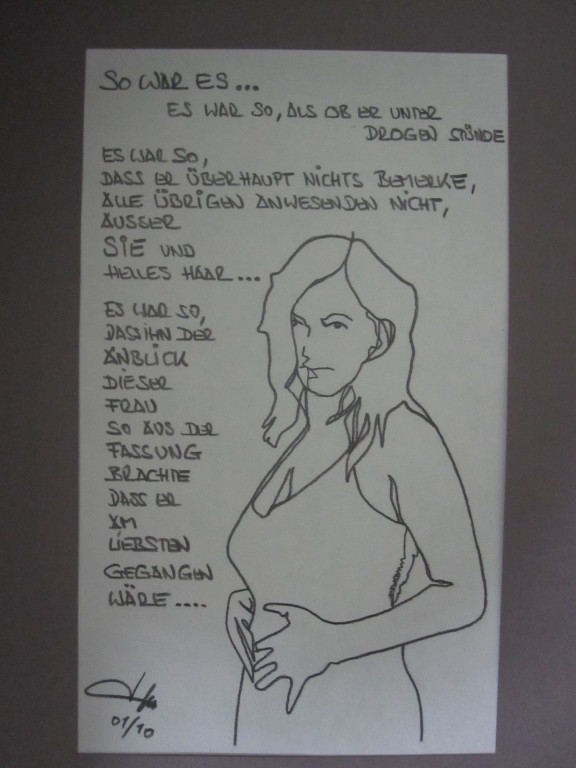 SO WAR ES...
ES WAR SO, ALS OB ER UNTER
DROGEN STÜNDE
ES WAR SO,
DASS ER ÜBERHAUPT NICHTS BEMERKE,
ALLE ÜBRIGEN ANWESENDEN NICHT,
AUSSER
SIE UND
HELLES HAAR...
ES WAR SO,
DASS IHN DER
ANBLICK
DIESER
FRAU
SO AUS DER
FASSUNG
BRACHTE
DASS ER
AM
LIEBSTEN
GEGANGEN
WÄRE....
01/10